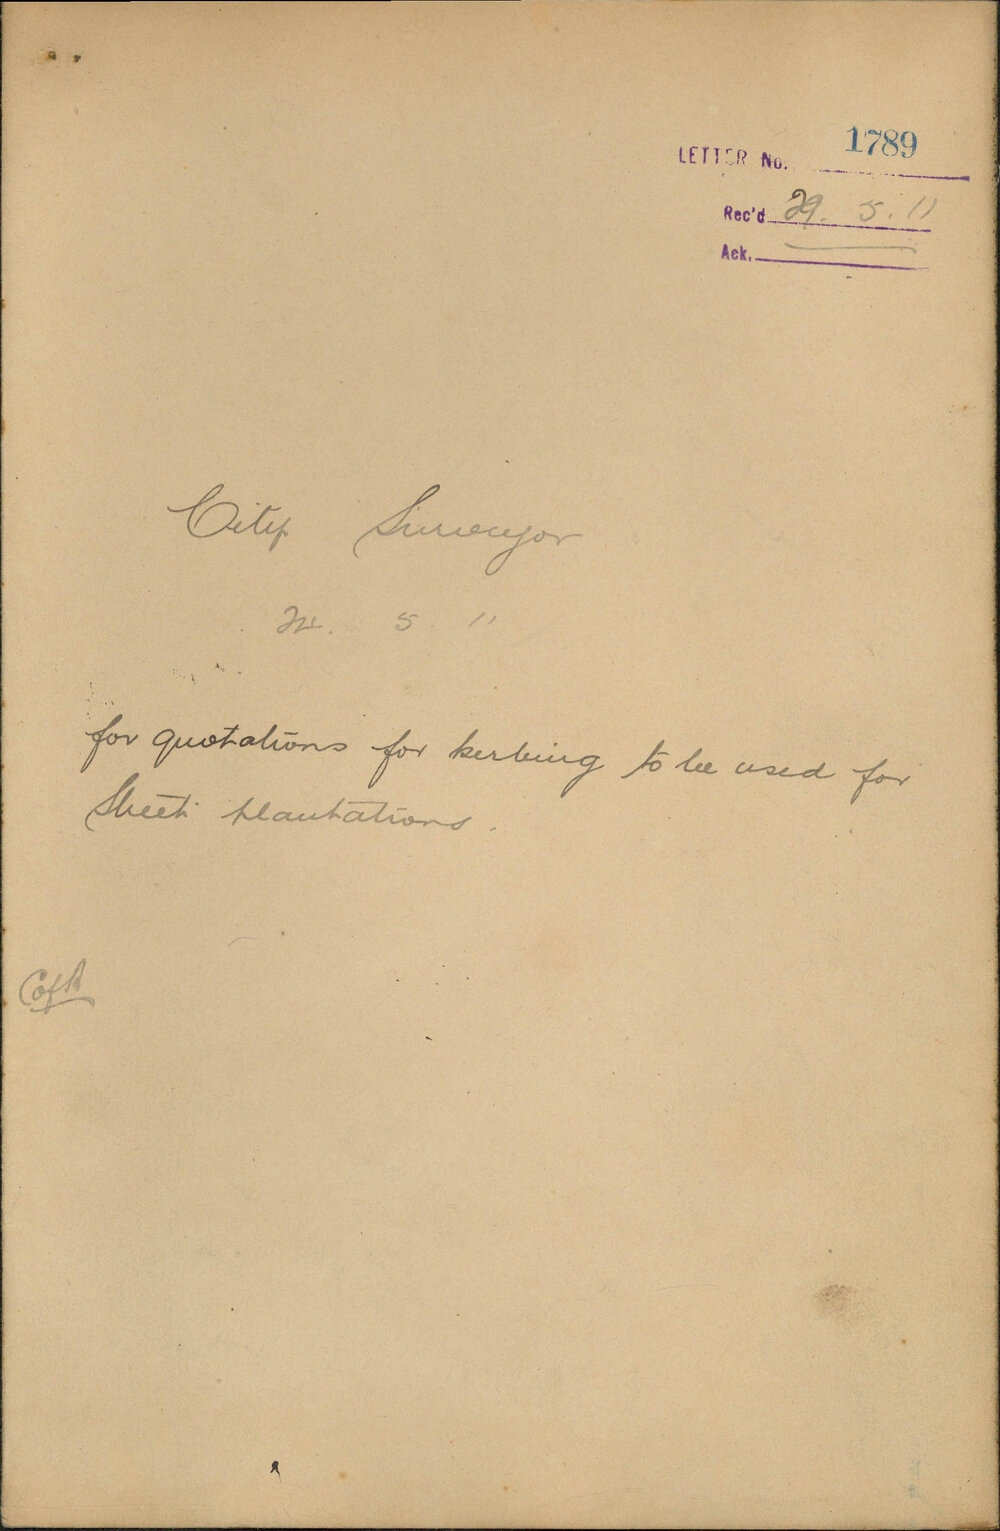 LETTER No. 1789
Rec'd 29. 5. 11
Ack.
City Surveyor
5 11
for quotations for kerbing to be used for
Street plantations.
CofA